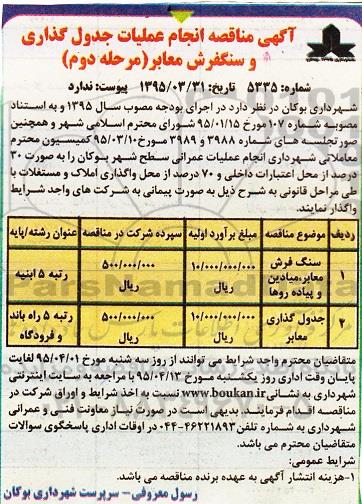 آگهی مناقصه انجام عملیات جدول گذاری
و سنگفرش معابر(مرحله دوم)
شماره: ۵۳۳۵ تاریخ: ۱۳۹۵/۰۳/۳۱ پیوست: ندارد
شهرداری بوکان در نظر دارد در اجرای بودجه مصوب سال ۱۳۹۵ و به استناد
مصوبه شماره ۱۰۷ مورخ ۹۵/۰۱/۱۵ شورای محترم اسلامی شهر و همچنین
صورتجلسه های شماره ۳۹۸۸ و ۳۹۸۹ مورخ ۹۵/۰۳/۱۰ کمیسیون محترم
معاملاتی شهرداری انجام عملیات عمرانی سطح شهر بوکان را به صورت ۳۰
درصد از محل اعتبارات داخلی و ۷۰ درصد از محل واگذاری املاک و مستغلات با
طی مراحل قانونی به شرح ذیل به صورت پیمانی به شرکت های واجد شرایط
واگذار نمایند.
ردیف موضوع مناقصه مبلغ برآورد اولیه سپرده شرکت در مناقصه عنوان رشته/پایه
۱ سنگ فرش معابر،میادین و پیاده روها ۱۰/۰۰۰/۰۰۰/۰۰۰ ریال ۵۰۰/۰۰۰/۰۰۰ ریال رتبه ۵ ابنیه
۲ جدول گذاری معابر ۱۰/۰۰۰/۰۰۰/۰۰۰ ریال ۵۰۰/۰۰۰/۰۰۰ ریال رتبه ۵ راه باند و فرودگاه
متقاضیان محترم واجد شرایط می توانند از روز سه شنبه مورخ ۹۵/۰۴/۰۱ لغایت
پایان وقت اداری روز یکشنبه مورخ ۹۵/۰۴/۱۳ با مراجعه به سایت اینترنتی
شهرداری به نشانی www.boukan.ir نسبت به اخذ شرایط و اوراق شرکت در
مناقصه اقدام فرمایند. بدیهی است در صورت نیاز معاونت فنی و عمرانی
شهرداری به شماره تلفن ۴۶۲۲۱۸۹۳-۰۴۴ در اوقات اداری پاسخگوی سوالات
متقاضیان محترم می باشد.
شرایط عمومی:
۱-هزینه انتشار آگهی به عهده برنده مناقصه می باشد.
رسول معروفی- سرپرست شهرداری بوکان